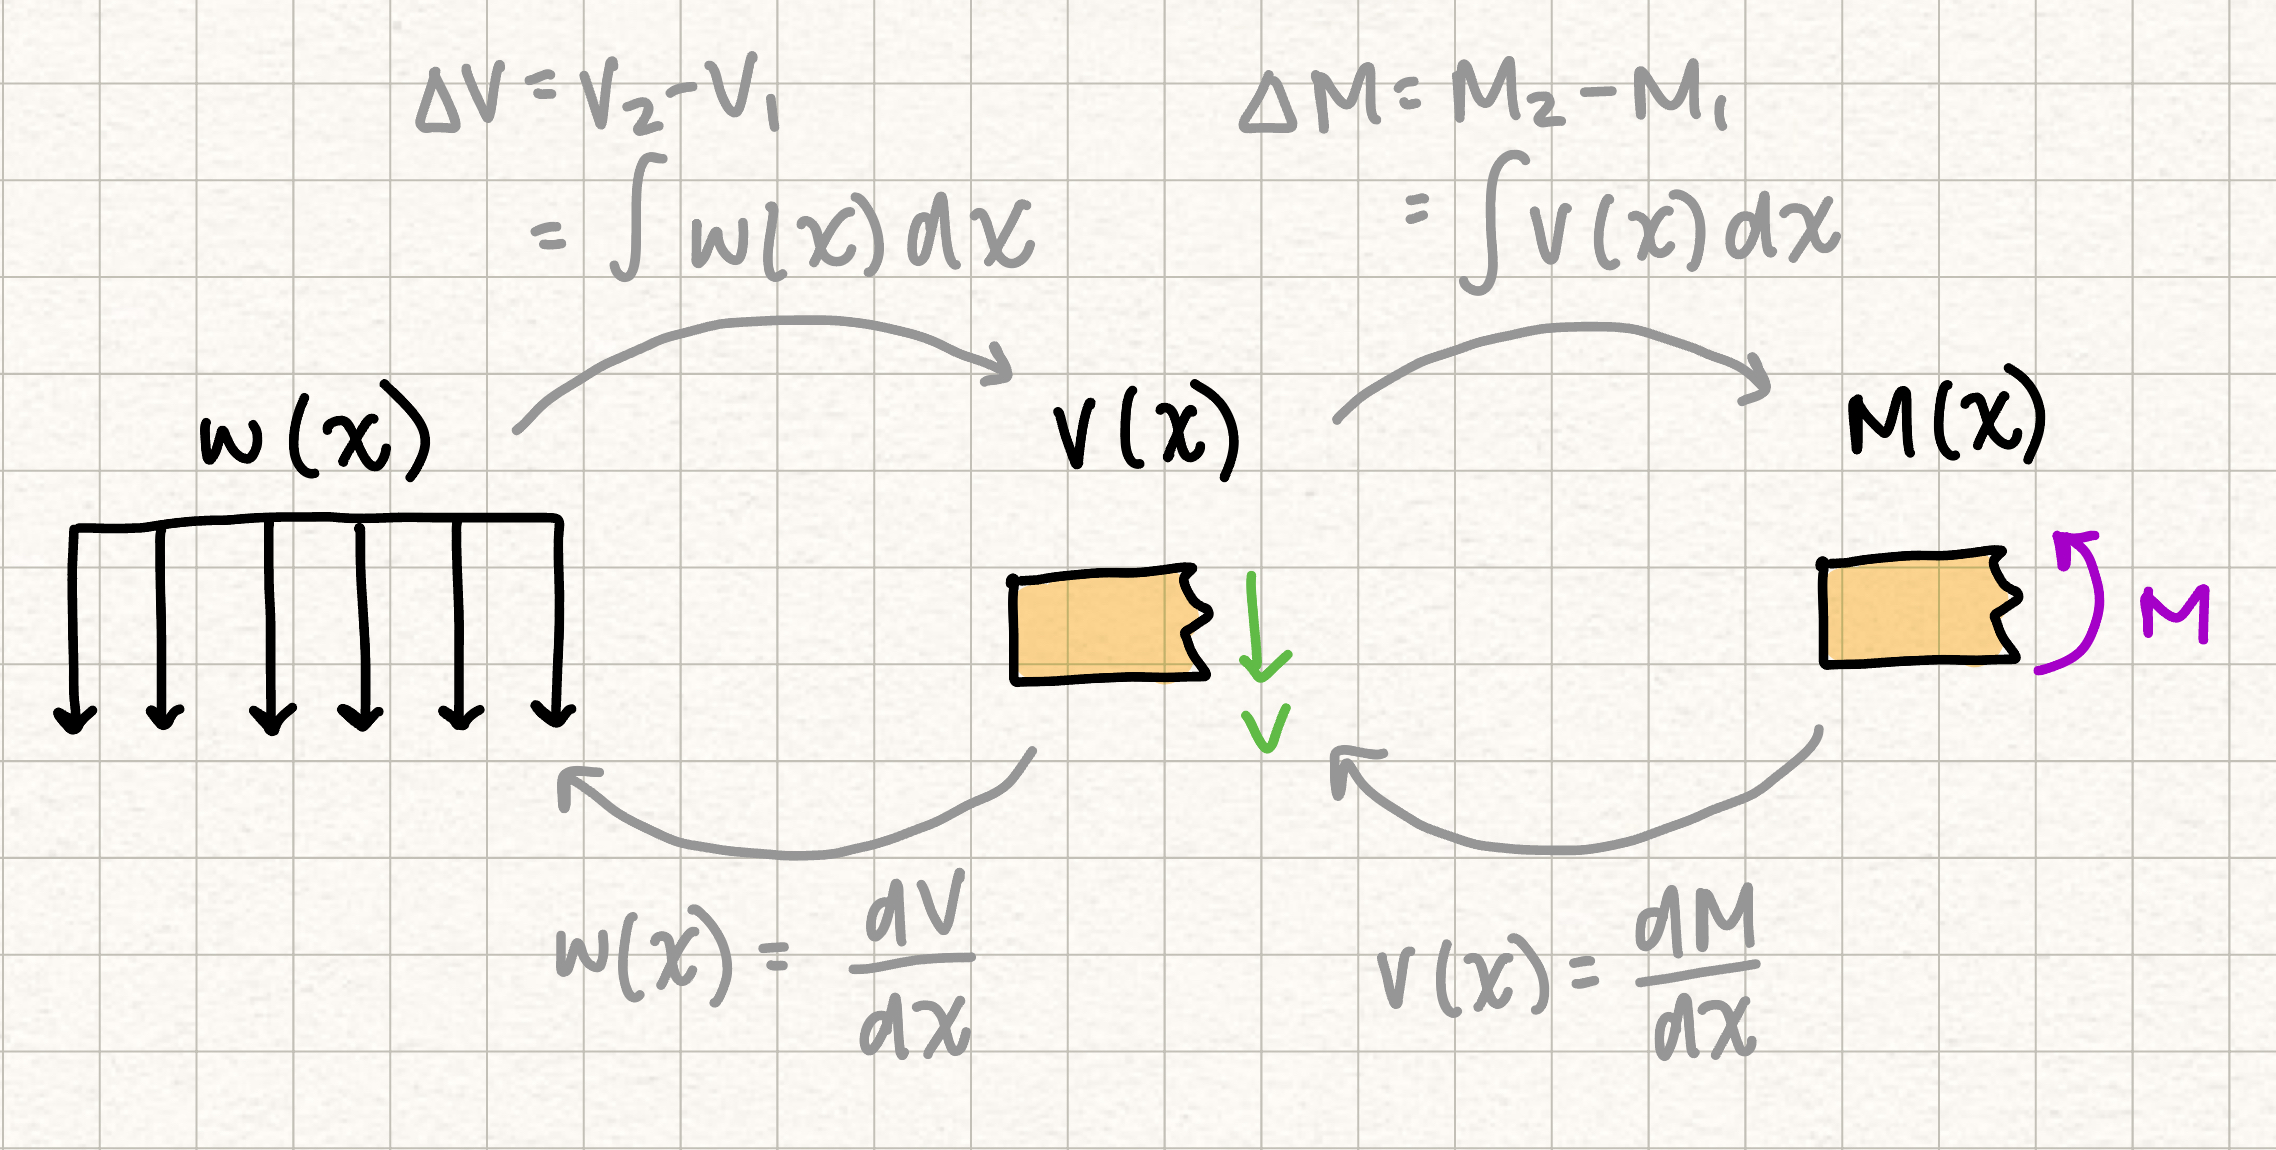 ΔV = V₂ - V₁
= ∫ w(x) dx
ΔM = M₂ - M₁
= ∫ V(x) dx
w(x)
V(x)
M(x)
V
M
w(x) = dV/dx
V(x) = dM/dx